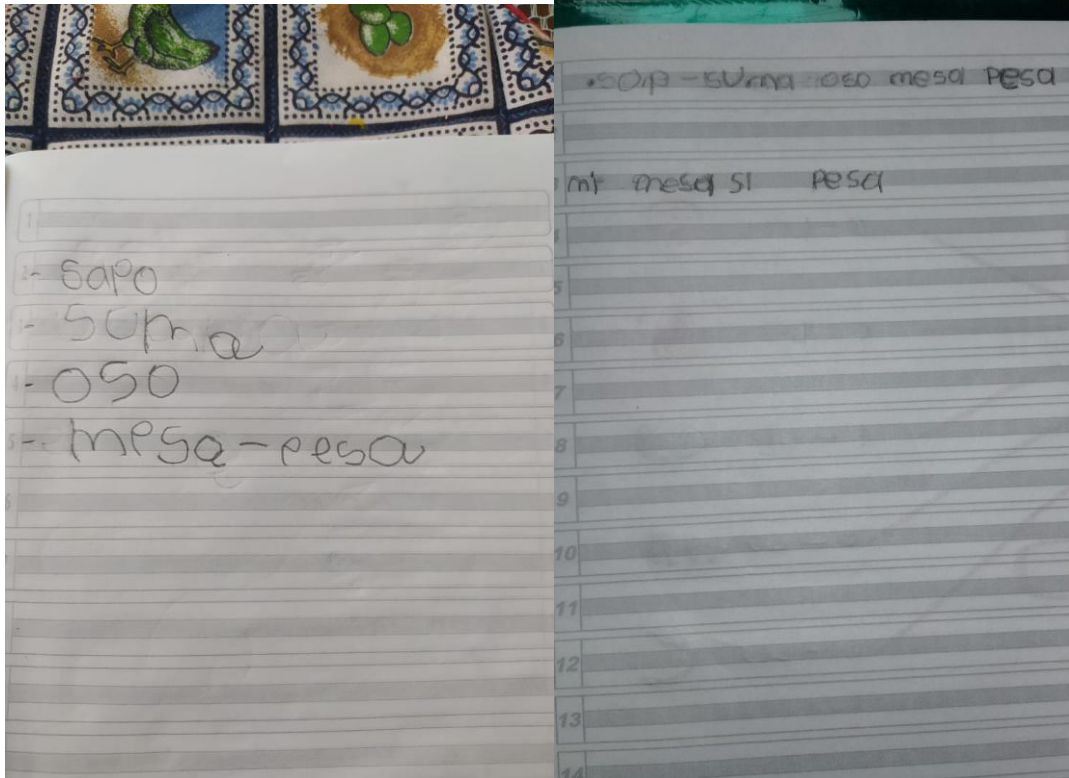 1
2- sapo
3- suma
4- oso
5- mesa-pesa
6
suma oso mesa pesa
mi mesa si pesa
4
5
6
7
8
9
10
11
12
13
14